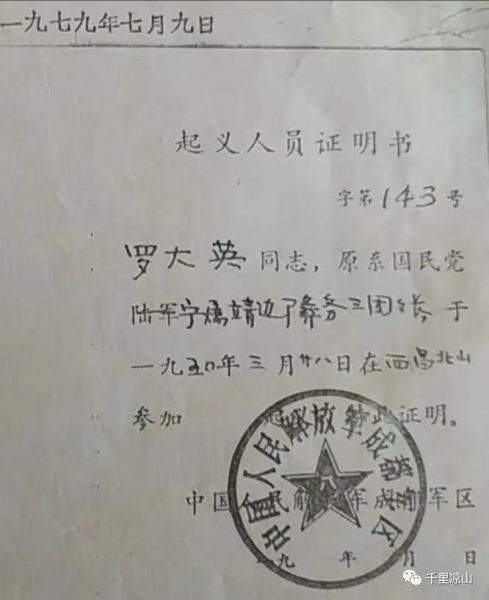 一九七九年七月九日
起义人员证明书
字第143号
罗大英同志,原系国民党
陆军宁属靖边 务三团 长,于
一九五〇年三月廿八日在西昌北山
参加 起 此证明。
中国人民解 军成 军区
一九 年 月 日
中国人民解放军成都军区
千里凉山